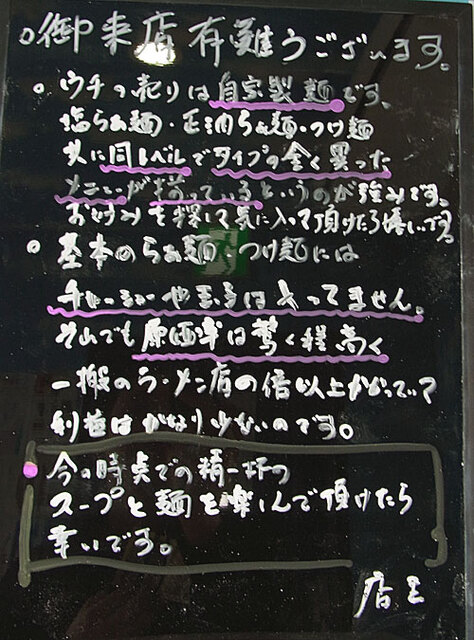 。御来店有難うございます。
・ウチの売りは自家製麺です、
塩らぁ麺・正油らぁ麺・つけ麺
共に同レベルでタイプの全く異った
メニューが揃っているというのが強みです。
お好みを探して気に入って頂けたら嬉しいです
・基本のらぁ麺・つけ麺には
チャーシューや玉子は入ってません。
それでも原価率は驚く程高く
一搬のラーメン店の倍以上かかっていて
利益はかなり少ないのです。
今の時点での精一杯の
スープと麺を楽しんで頂けたら
幸いです。
店主